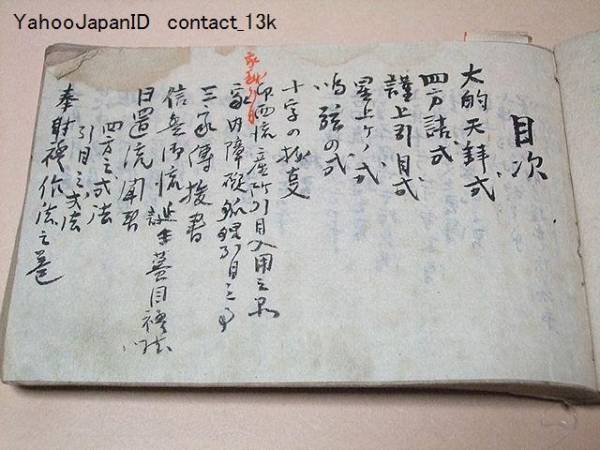 YahooJapanID contact_13k
目次
大的天拝式
四方詰式
謹上引目式
星上ケノ式
鳴弦の式
十字の秘支
産所引目入用之
家内障礙狐狸引目之事
三家傳授書
信 流 誕生蟇目
日置流
四方之式法
引目之式法
奉射礼作法之巻